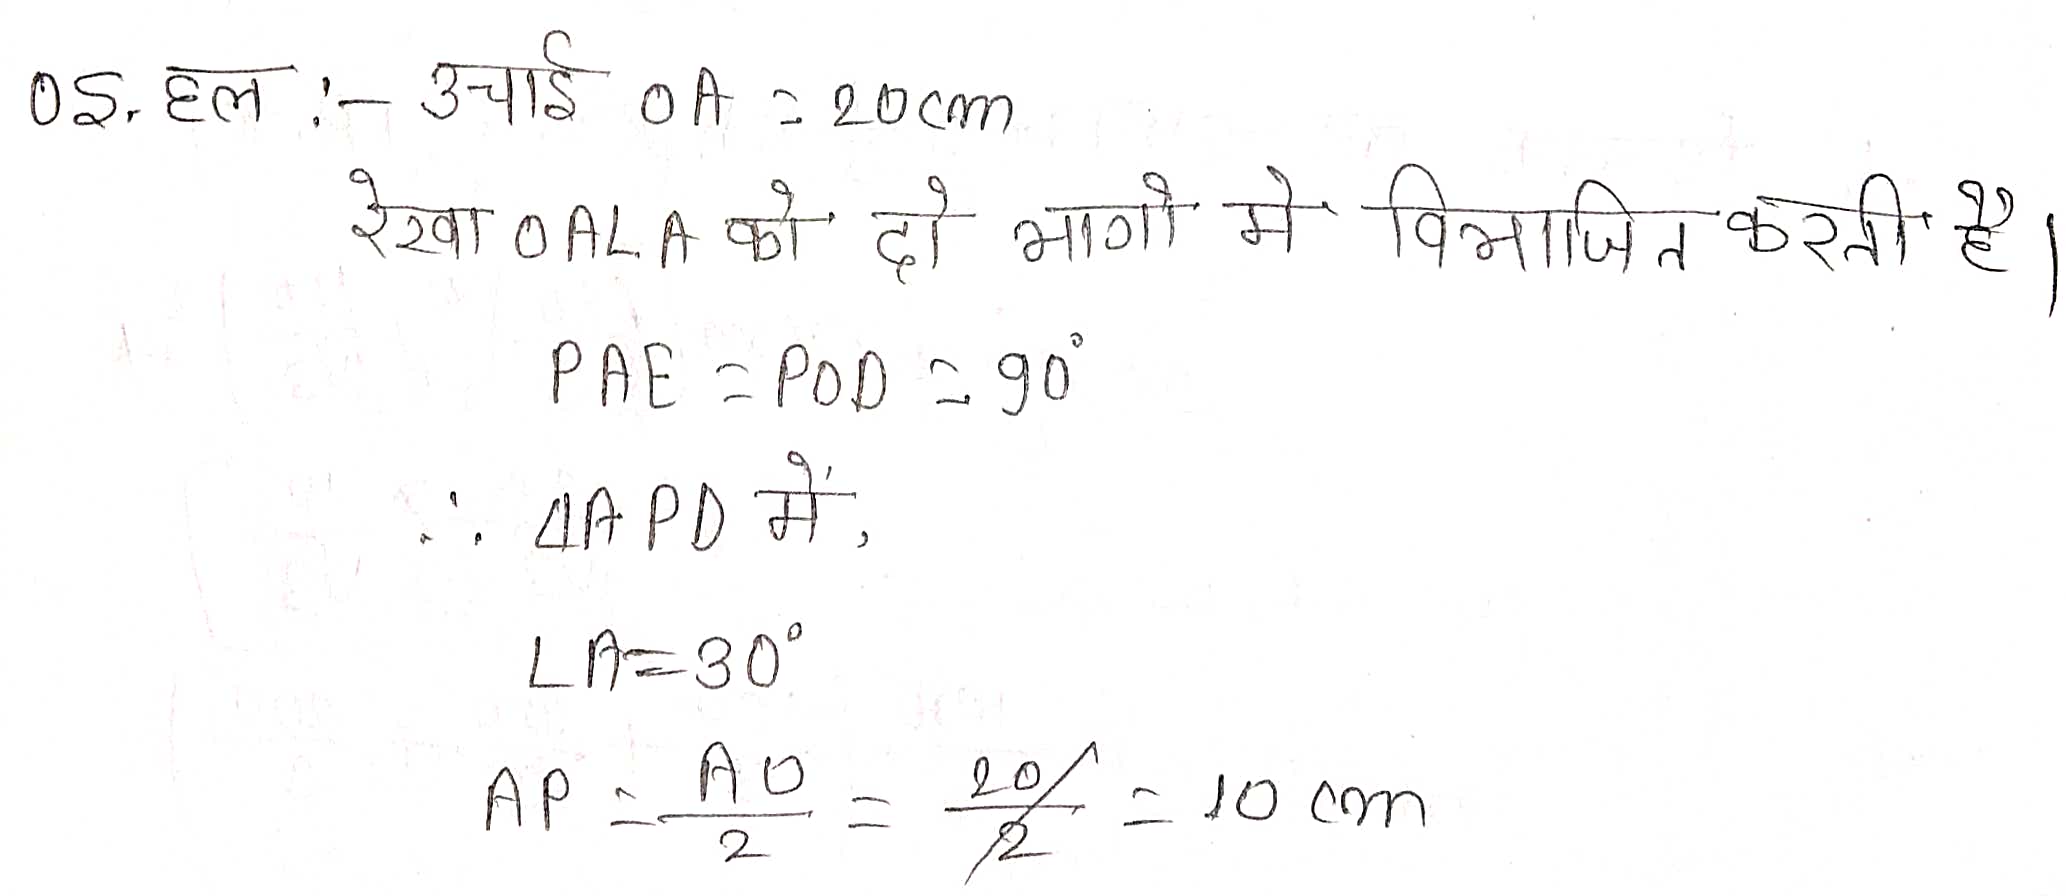 05. हल :- उचाई OA = 20cm
रेखा OA∠A को दो भागो मे विभाजित करती है।
PAE = POD = 90°
∴ ΔAPD में,
∠A=30°
AP = AO/2 = 20/2 = 10 cm